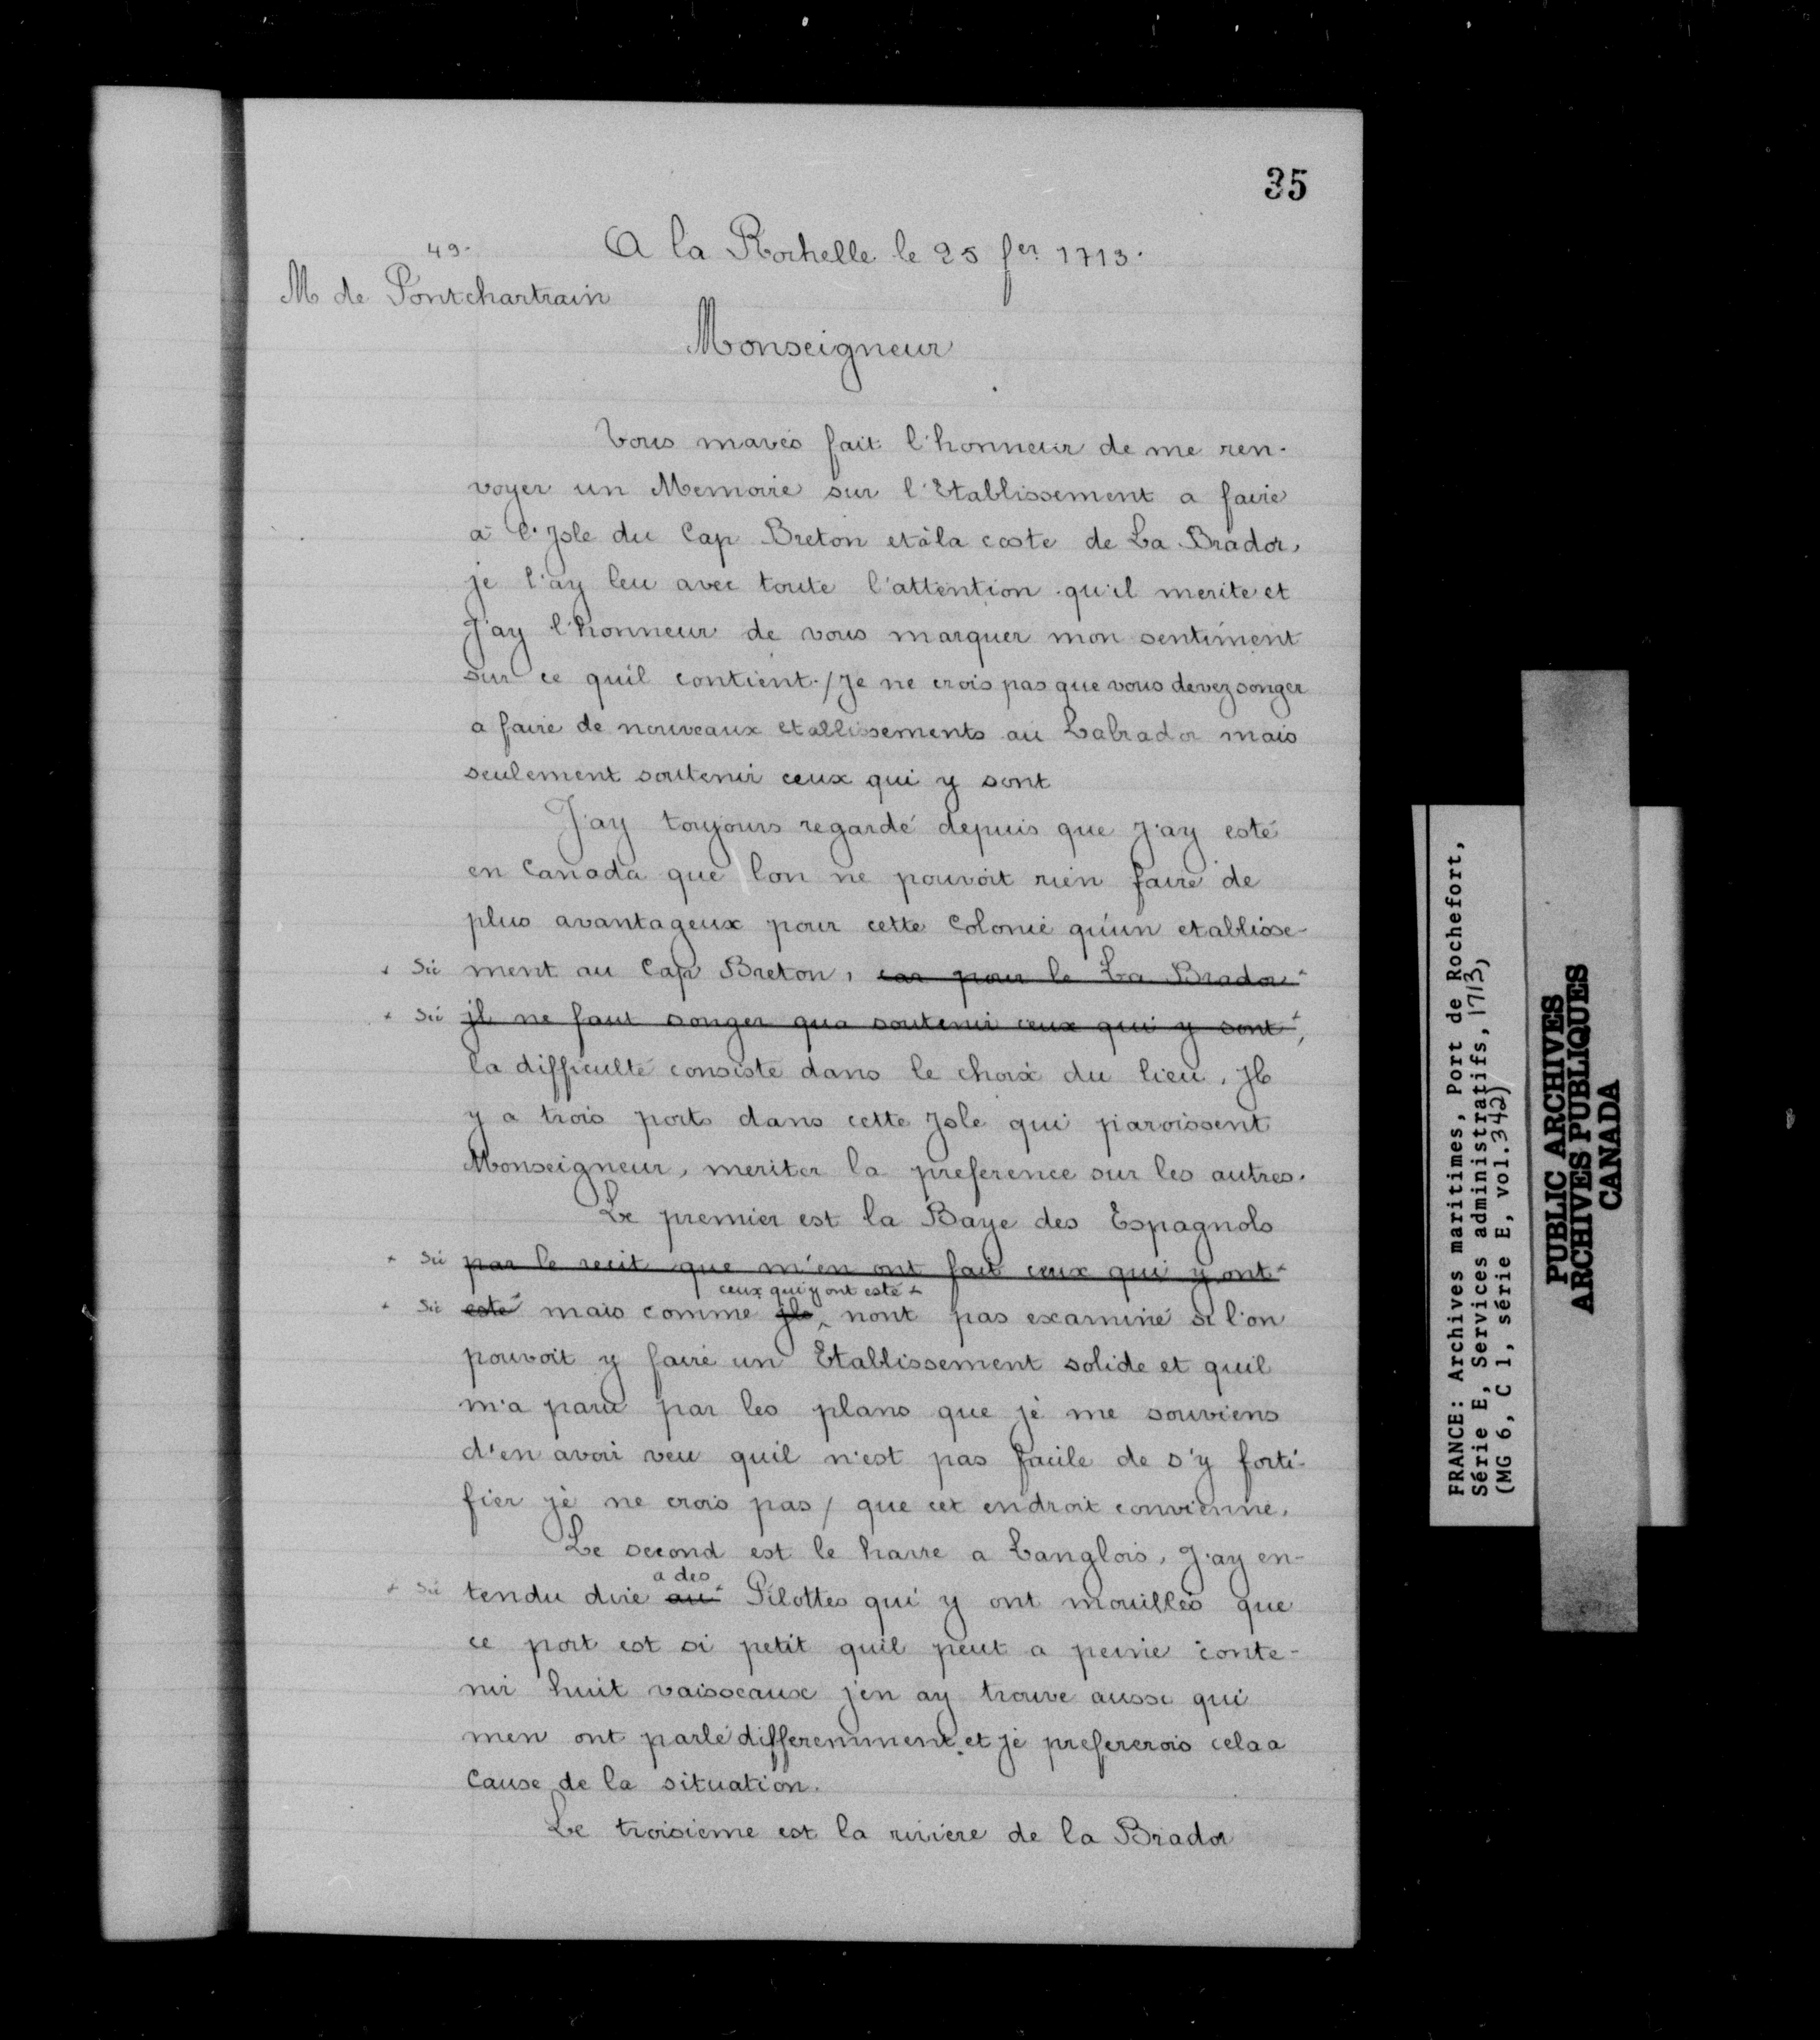 35
A la Rochelle le 25 fer 1713.
49.
M de Pontchartrain
Monseigneur
Vous mavés fait l'honneur de me ren-
voyer un Memoire sur l'Etablissement a faire
à l'Jsle du Cap Breton et à la coste de La Brador,
je l'ay leu avec toute l'attention qu'il merite et
J'ay l'honneur de vous marquer mon sentiment
sur ce quil contient./Je ne crois pas que vous devez songer
a faire de nouveaux etablissements au Labrador mais
seulement soutenir ceux qui y sont
J'ay toujours regardé depuis que J'ay esté
en Canada que lon ne pouvoit rien faire de
plus avantageux pour cette Colonie qu'un etablisse-
+ Sic ment au Cap Breton, car pour le La Brador +
+ Sic jl ne faut songer qua soutenir ceux qui y sont +,
la difficulté consiste dans le choix du lieu. Jl
y a trois ports dans cette Jsle qui paroissent
Monseigneur, meriter la preference sur les autres.
Le premier est la Baye des Espagnols
+ Sic par le recit que m'en ont fait ceux qui y ont +
ceux qui y ont esté +
+ Sic esté mais comme jls nont pas examiné si l'on
pouvoit y faire un Etablissement solide et quil
m'a paru par les plans que je me souviens
d'en avoir veu quil n'est pas facile de s'y forti-
fier je ne crois pas / que cet endroit convienne.
Le second est le havre a Langlois, J'ay en-
a des
+ Sic tendu dire au + Pilottes qui y ont mouillés que
ce port est si petit quil peut a peine conte-
nir huit vaisseaux j'en ay trouve aussi qui
men ont parlé differemment et je prefererois cela a
cause de la situation.
Le troisieme est la riviere de la Brador
FRANCE: Archives maritimes, Port de Rochefort,
Série E, Services administratifs, 1713,
(MG 6, C 1, série E, vol. 342)
PUBLIC ARCHIVES
ARCHIVES PUBLIQUES
CANADA